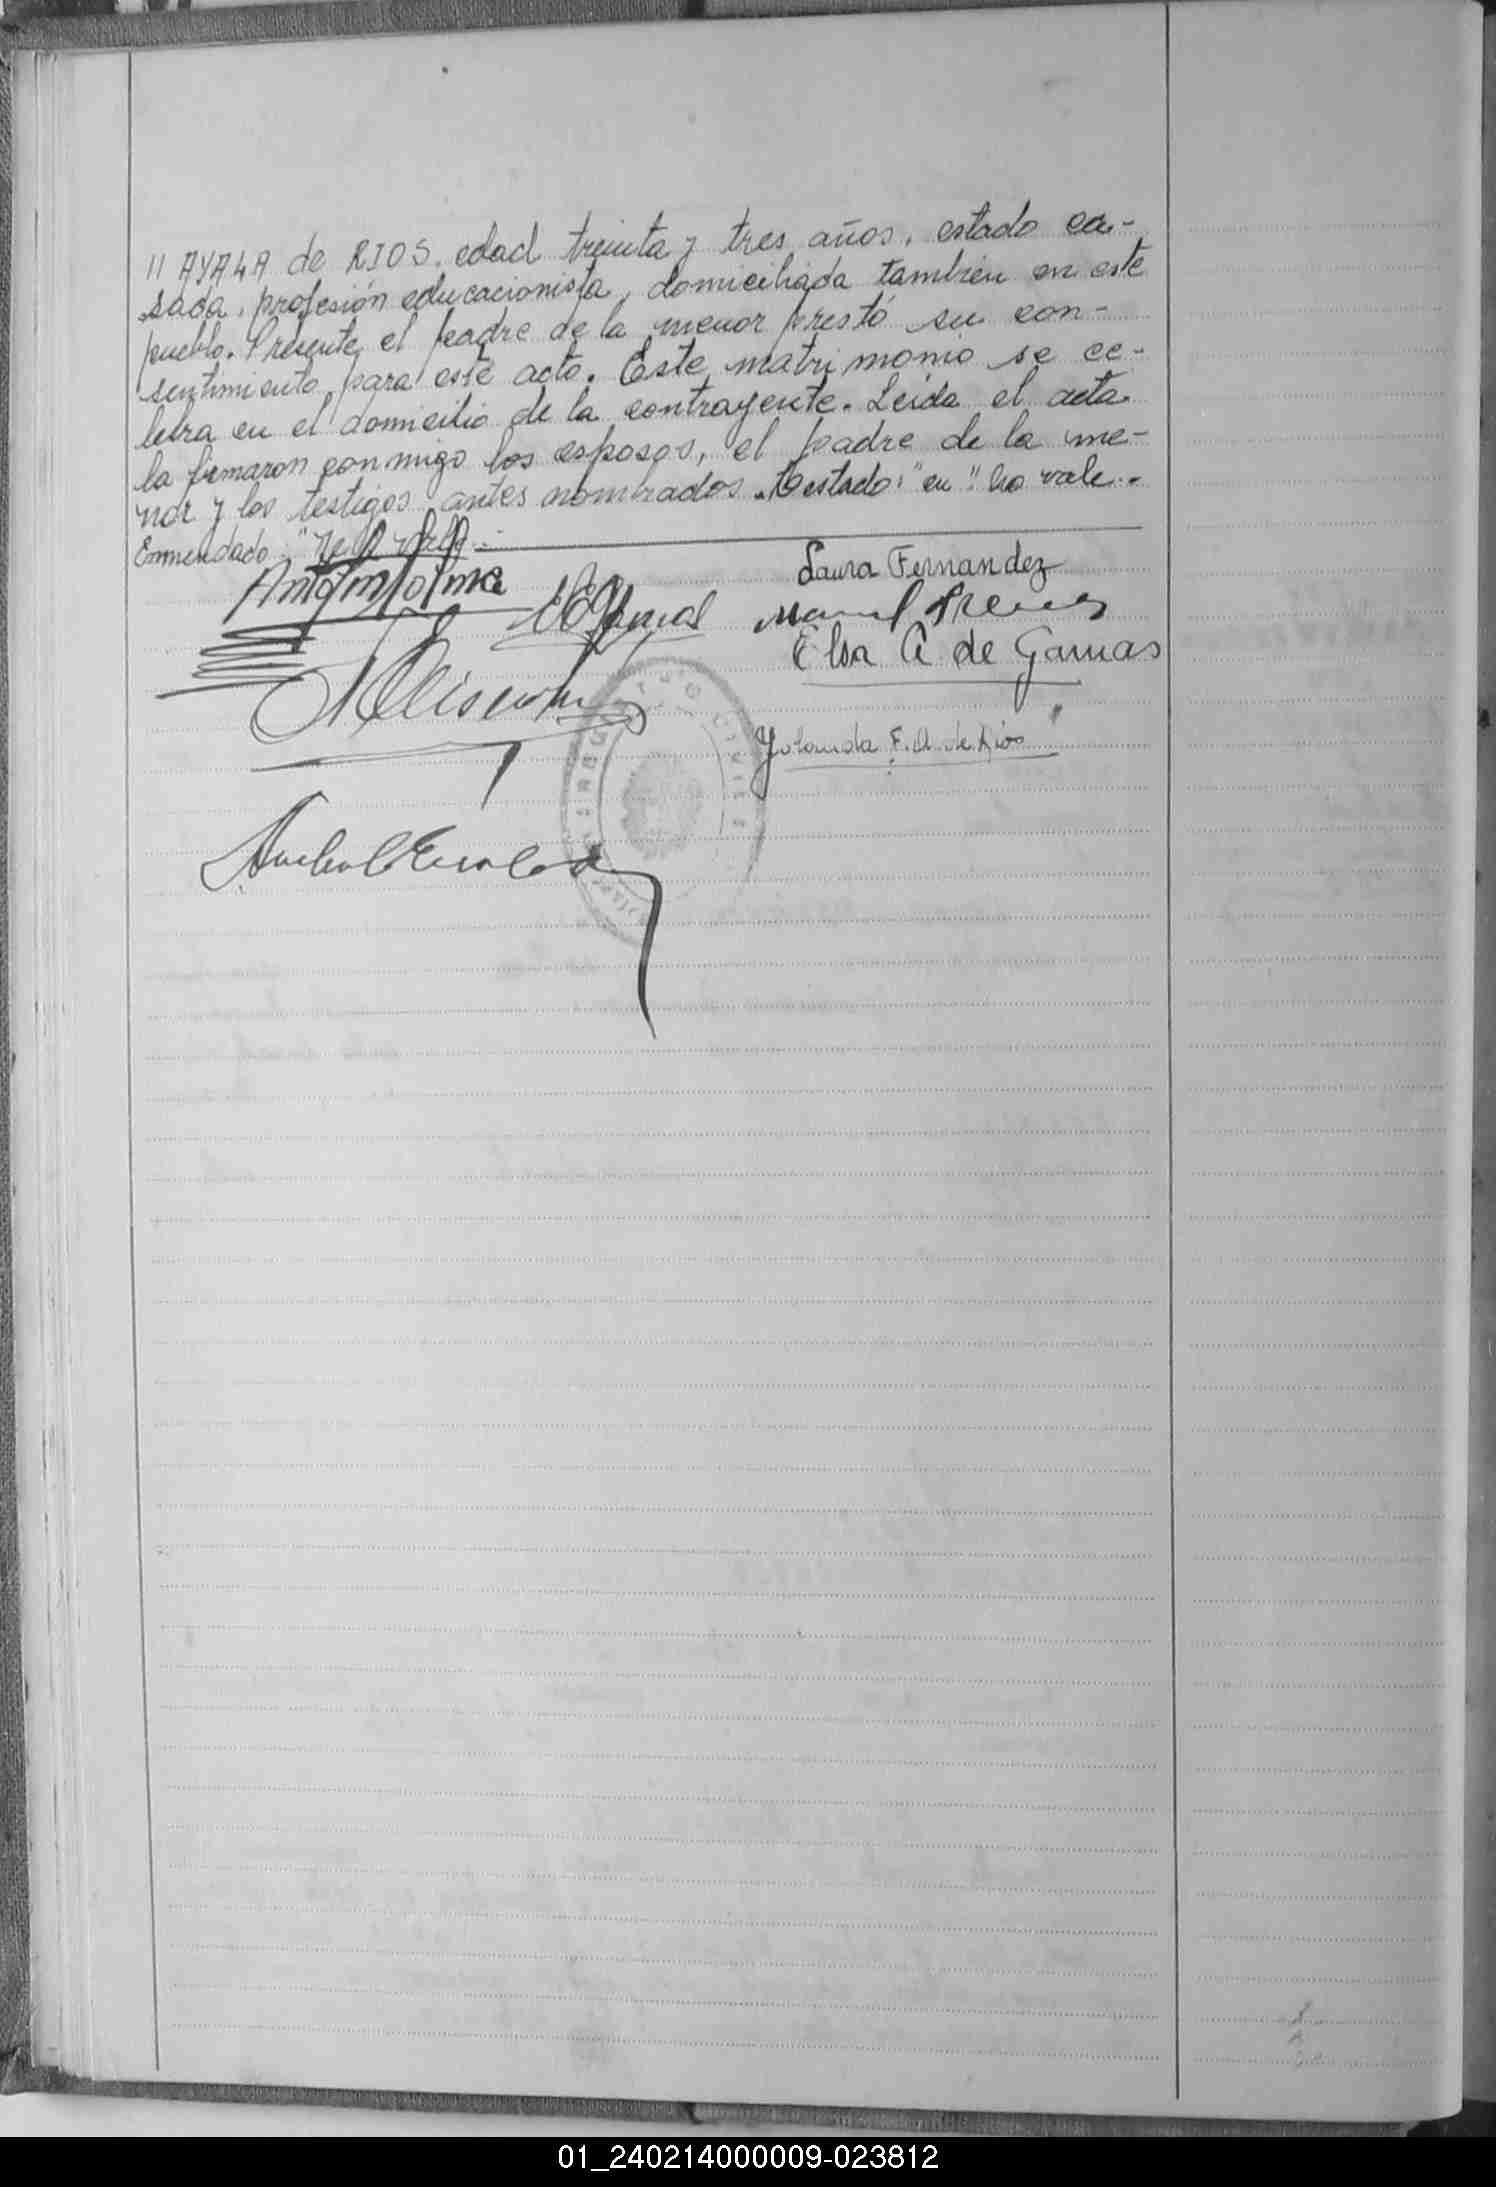 " AYALA de RIOS, edad treinta y tres años, estado ca-
sada, profesión educacionista, domiciliada también en este
pueblo. Presente el padre de la menor prestó su con-
sentimiento para este acto. Este matrimonio se ce-
lebra en el domicilio de la contrayente. Leída el acta
la firmaron conmigo los esposos, el padre de la me-
nor y los testigos antes nombrados. Testado: "en" No vale.-
Enmendado:
Laura Fernandez
Manuel
Elsa A de Gamas
Yolanda F. A. de Rios
CIVIL
01_240214000009-023812